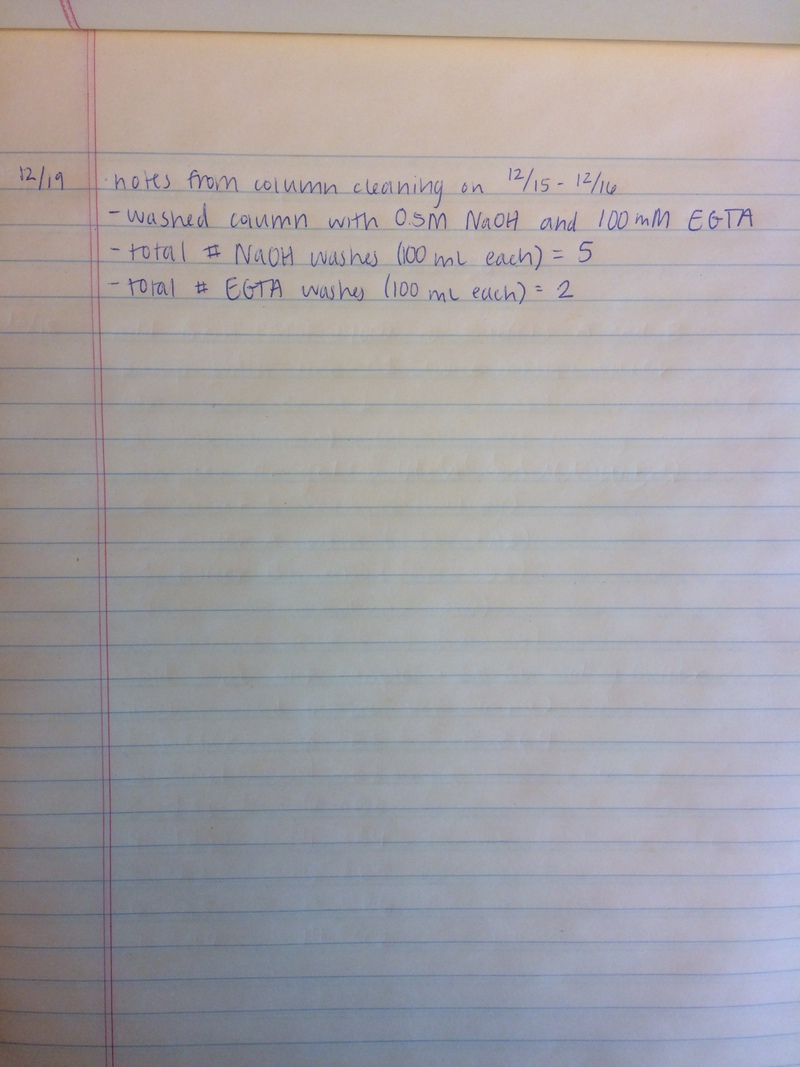 12/19 notes from column cleaning on 12/15 - 12/16
- washed column with 0.5M NaOH and 100 mM EGTA
- total # NaOH washes (100 mL each) = 5
- total # EGTA washes (100 mL each) = 2